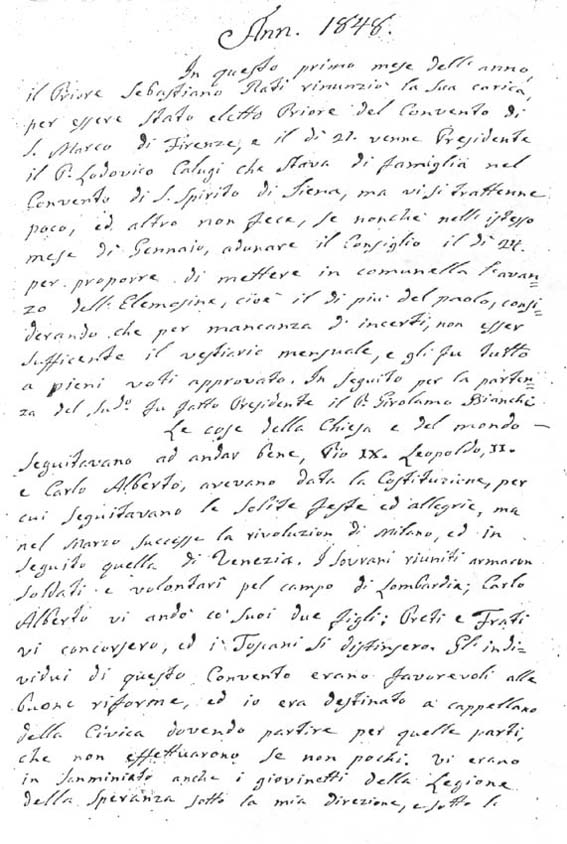 Ann. 1848.
In questo primo mese dell'anno,
il Priore Sebastiano Rati rinunziò la sua carica,
per essere stato eletto Priore del Convento di
S. Marco di Firenze, e il dì 21. venne Presidente
il P. Lodovico Calugi che stava di famiglia nel
Convento di S. Spirito di Siena, ma vi si trattenne
poco, ed altro non fece, se nonchè nell'istesso
mese di Gennaio, adunare il Consiglio il dì 24.
per proporre di mettere in comunella l'avan=
zo dell'Elemosine, cioè il di più del paolo, consi=
derando che per mancanza d'incerti, non esser
sufficente il vestiario mensuale, e gli fu tutto
a pieni voti approvato. In seguito per la parten=
za del Sudo. fu fatto Presidente il P. Girolamo Bianchi
Le cose della Chiesa e del mondo —
seguitavano ad andar bene, Pio IX. Leopoldo, II.
e Carlo Alberto, avevano data la Costituzione, per
cui seguitavano le solite feste ed allegrie, ma
nel Marzo successe la rivoluzion di Milano, ed in
seguito quella di Venezia. I Sovrani riuniti armaron
soldati e volontari pel campo di Lombardia; Carlo
Alberto vi andò co' suoi due figli; Preti e Frati
vi concorsero, ed i Toscani si distinsero. Gl'indi=
vidui di questo Convento erano favorevoli alle
buone riforme, ed io era destinato a cappellano
della Civica dovendo partire per quelle parti,
che non effettuarono se non pochi. Vi erano
in Sanminiato anche i giovinetti della Legione
della Speranza sotto la mia direzione, e sotto li